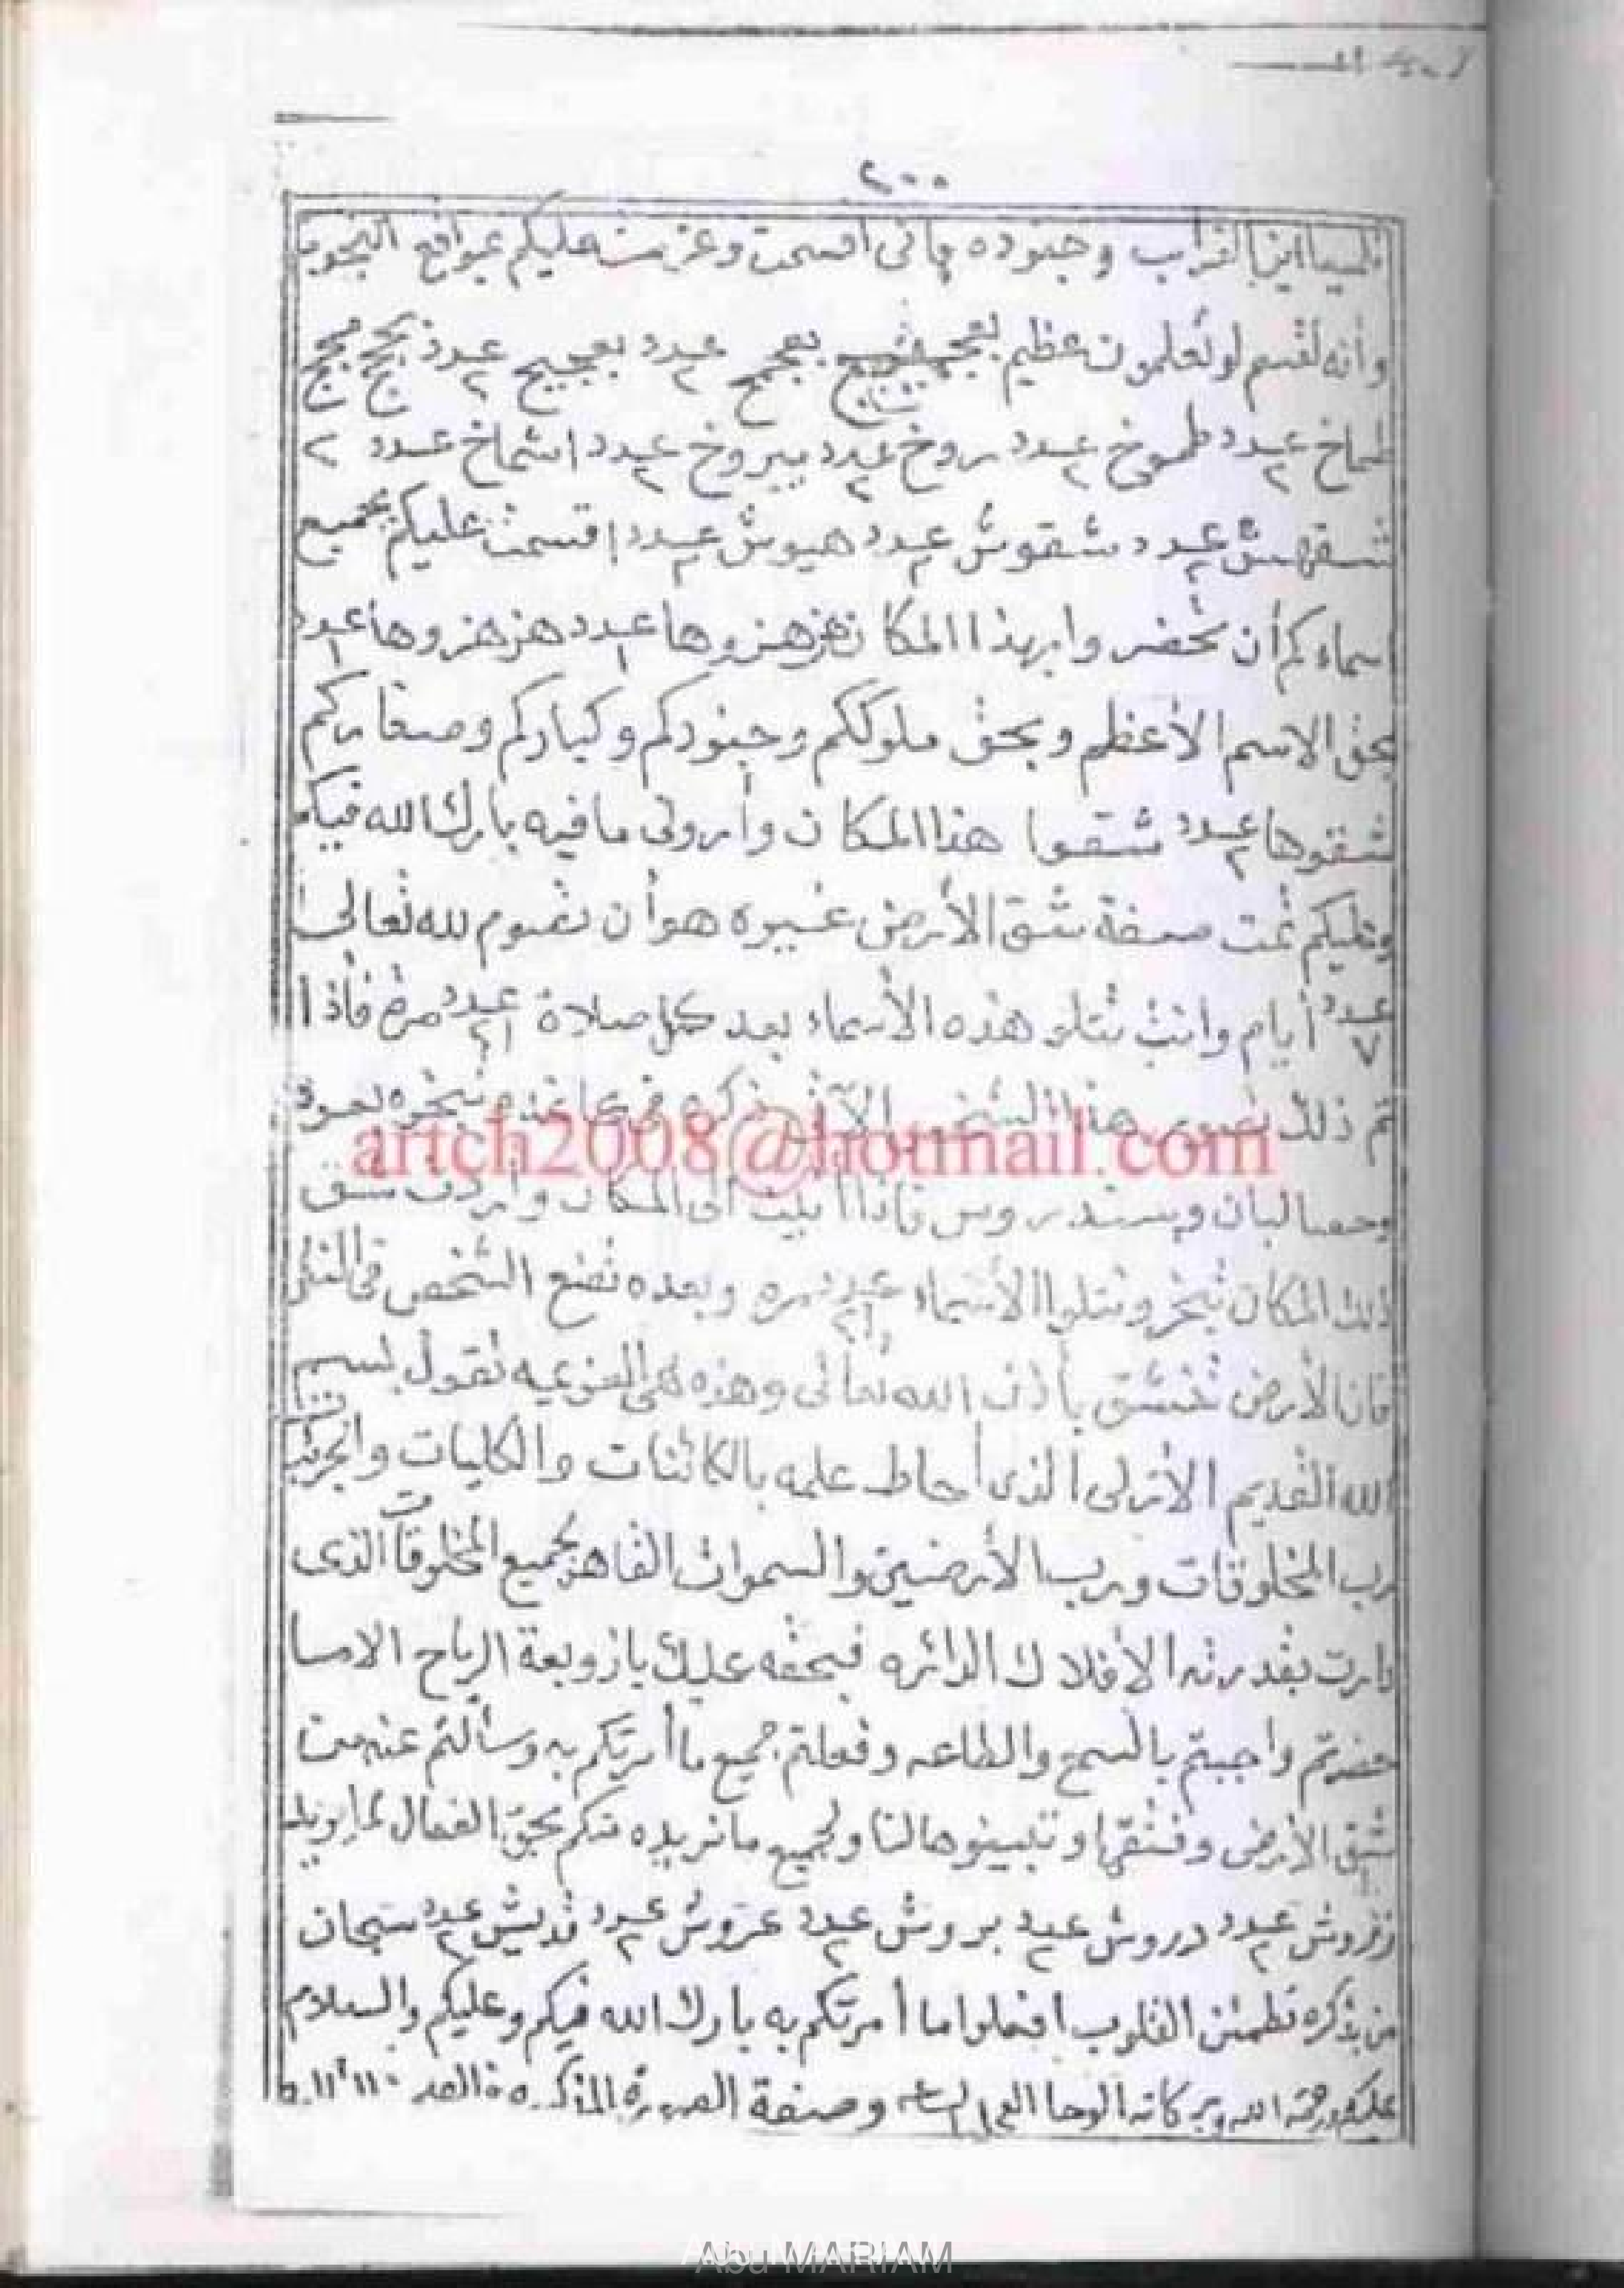 ٢٠٠
التراب وجنوده فانى اقسمت وعزمت عليكم بمواقع النجوم
وأنه لقسم لو تعلمون عظيم بعجمج عدد ٢ بعجيج عدد ٢
طماخ عدد ٢ طموخ عدد ٢ روخ عدد ٢ بيروخ عدد ٢ اشماخ عدد ٢
شقهش عدد ٢ شقوش عدد ٢ هيوش عدد ٢ اقسمت عليكم بجميع
اسماءكم أن تحضروا بهذا المكان هزهزوها عدد هزهزوها عدد
بحق الاسم الأعظم وبحق ملوككم وجنودكم وكباركم وصغاركم
شقوها عدد ٢ شقوا هذا المكان وأرونى ما فيه بارك الله فيكم
وعليكم تمت صفة شق الأرض غيره هو أن تصوم لله تعالى
عدد ٧ أيام وانت تتلو هذه الأسماء بعد كل صلاة عدد ٢١ مرة فأذا
تم ذلك هذا الشخص الآتى ذكره فى تبخره بعود
وحصالبان وسندروس فاذا أتيت الى المكان وأردت شق
ذلك المكان تبخر وتتلوا الأسماء عدد ٢١ مره وبعده تضع الشخص فى
فان الأرض تنشق بأذن الله تعالى وهذه هى العزيمه تقول بسم
الله القديم الأزلى الذى أحاط علمه بالكائنات والكليات والجزئيات
رب المخلوقات ورب الأرضين والسموات القاهر بجميع المخلوقات الذى
دارت بقدرته الأفلاك الدائره فبحقه عليك يا زوبعة الرياح الا ما
حضرتم واجبتم بالسمع والطاعه وفعلتم جميع ما أمرتكم به وسألتم عنه من
شق الأرض وفتقها وتبينوها لنا ولجميع ما نريده منكم بحق الفعال لما يريد
زغروش عدد ٢ دروش عدد ٢ بروش عدد ٢ عروش عدد ٢ قديش عدد ٢ سبحان
من بذكره تطمئن القلوب افعلوا ما أمرتكم به بارك الله فيكم وعليكم والسلام
عليكم ورحمة الله وبركاته الوحا العجل الساعه وصفة الصورة المذكوره
artch2008@hotmail.com
Abu MARIAM